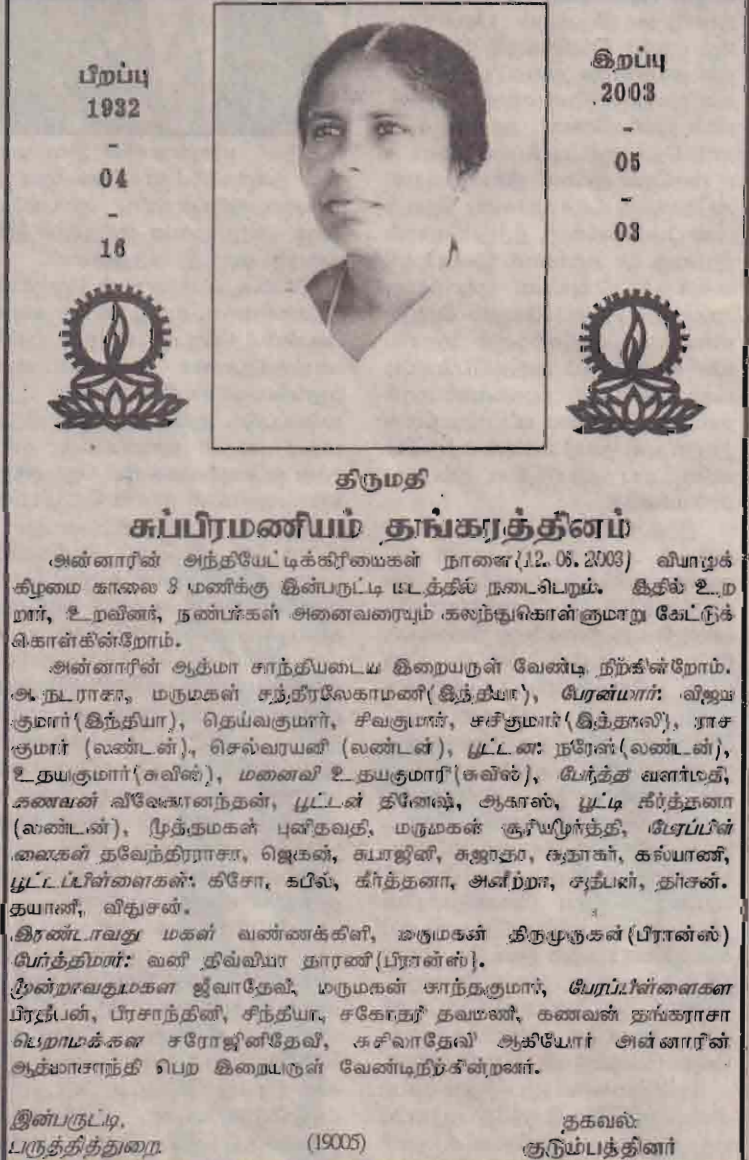 பிறப்பு
1932
-
04
-
16
இறப்பு
2003
-
05
-
03
திருமதி
சுப்பிரமணியம் தங்கரத்தினம்
அன்னாரின் அந்தியேட்டிக்கிரியைகள் நாளை(12. 06. 2003) வியாழக்
கிழமை காலை 8 மணிக்கு இன்பருட்டி மடத்தில் நடைபெறும். இதில் உற்
றார், உறவினர், நண்பர்கள் அனைவரையும் கலந்துகொள்ளுமாறு கேட்டுக்
கொள்கின்றோம்.
அன்னாரின் ஆத்மா சாந்தியடைய இறையருள் வேண்டி நிற்கின்றோம்.
அ. நடராசா, மருமகள் சந்திரலேகாமணி(இந்தியா), பேரன்மார்: விஜய
குமார்(இந்தியா), தெய்வகுமார், சிவகுமார், சசிகுமார்(இத்தாலி), ராச
குமார் (லண்டன்), செல்வரயனி (லண்டன்), பூட்டன: நரேஸ்(லண்டன்),
உதயகுமார்(சுவிஸ்), மனைவி உதயகுமாரி(சுவிஸ்), பேர்த்தி வளர்மதி,
கணவன் விவேகானந்தன், பூட்டன் தினேஷ், ஆகாஸ், பூட்டி கீர்த்தனா
(லண்டன்), மூத்தமகள் புனிதவதி, மருமகன் சூரியமூர்த்தி, பேரப்பிள்
ளைகள் தவேந்திரராசா, ஜெகன், சுபாஜினி, சுஜாதா, சுதாகர், கல்யாணி,
பூட்டப்பிள்ளைகள்: கிசோ, கபில், கீர்த்தனா, அனீற்றா, சதீபன், தர்சன்.
தயானி, விதுசன்.
இரண்டாவது மகள் வண்ணக்கிளி, மருமகன் திருமுருகன்(பிரான்ஸ்)
பேர்த்திமார்: வனி திவ்வியா தாரணி(பிரான்ஸ்).
மூன்றாவதுமகள ஜீவாதேவி, மருமகன் காந்தகுமார், பேரப்பிள்ளைகள
பிரதீபன், பிரசாந்தினி, சிந்தியா, சகோதரி தவமணி, கணவன் தங்கராசா
பெறாமக்கள சரோஜினிதேவி, சுசிலாதேவி ஆகியோர் அன்னாரின்
ஆத்மாசாந்தி பெற இறையருள் வேண்டிநிற்கின்றனர்.
இன்பருட்டி,
பருத்தித்துறை.
(19005)
தகவல்:
குடும்பத்தினர்